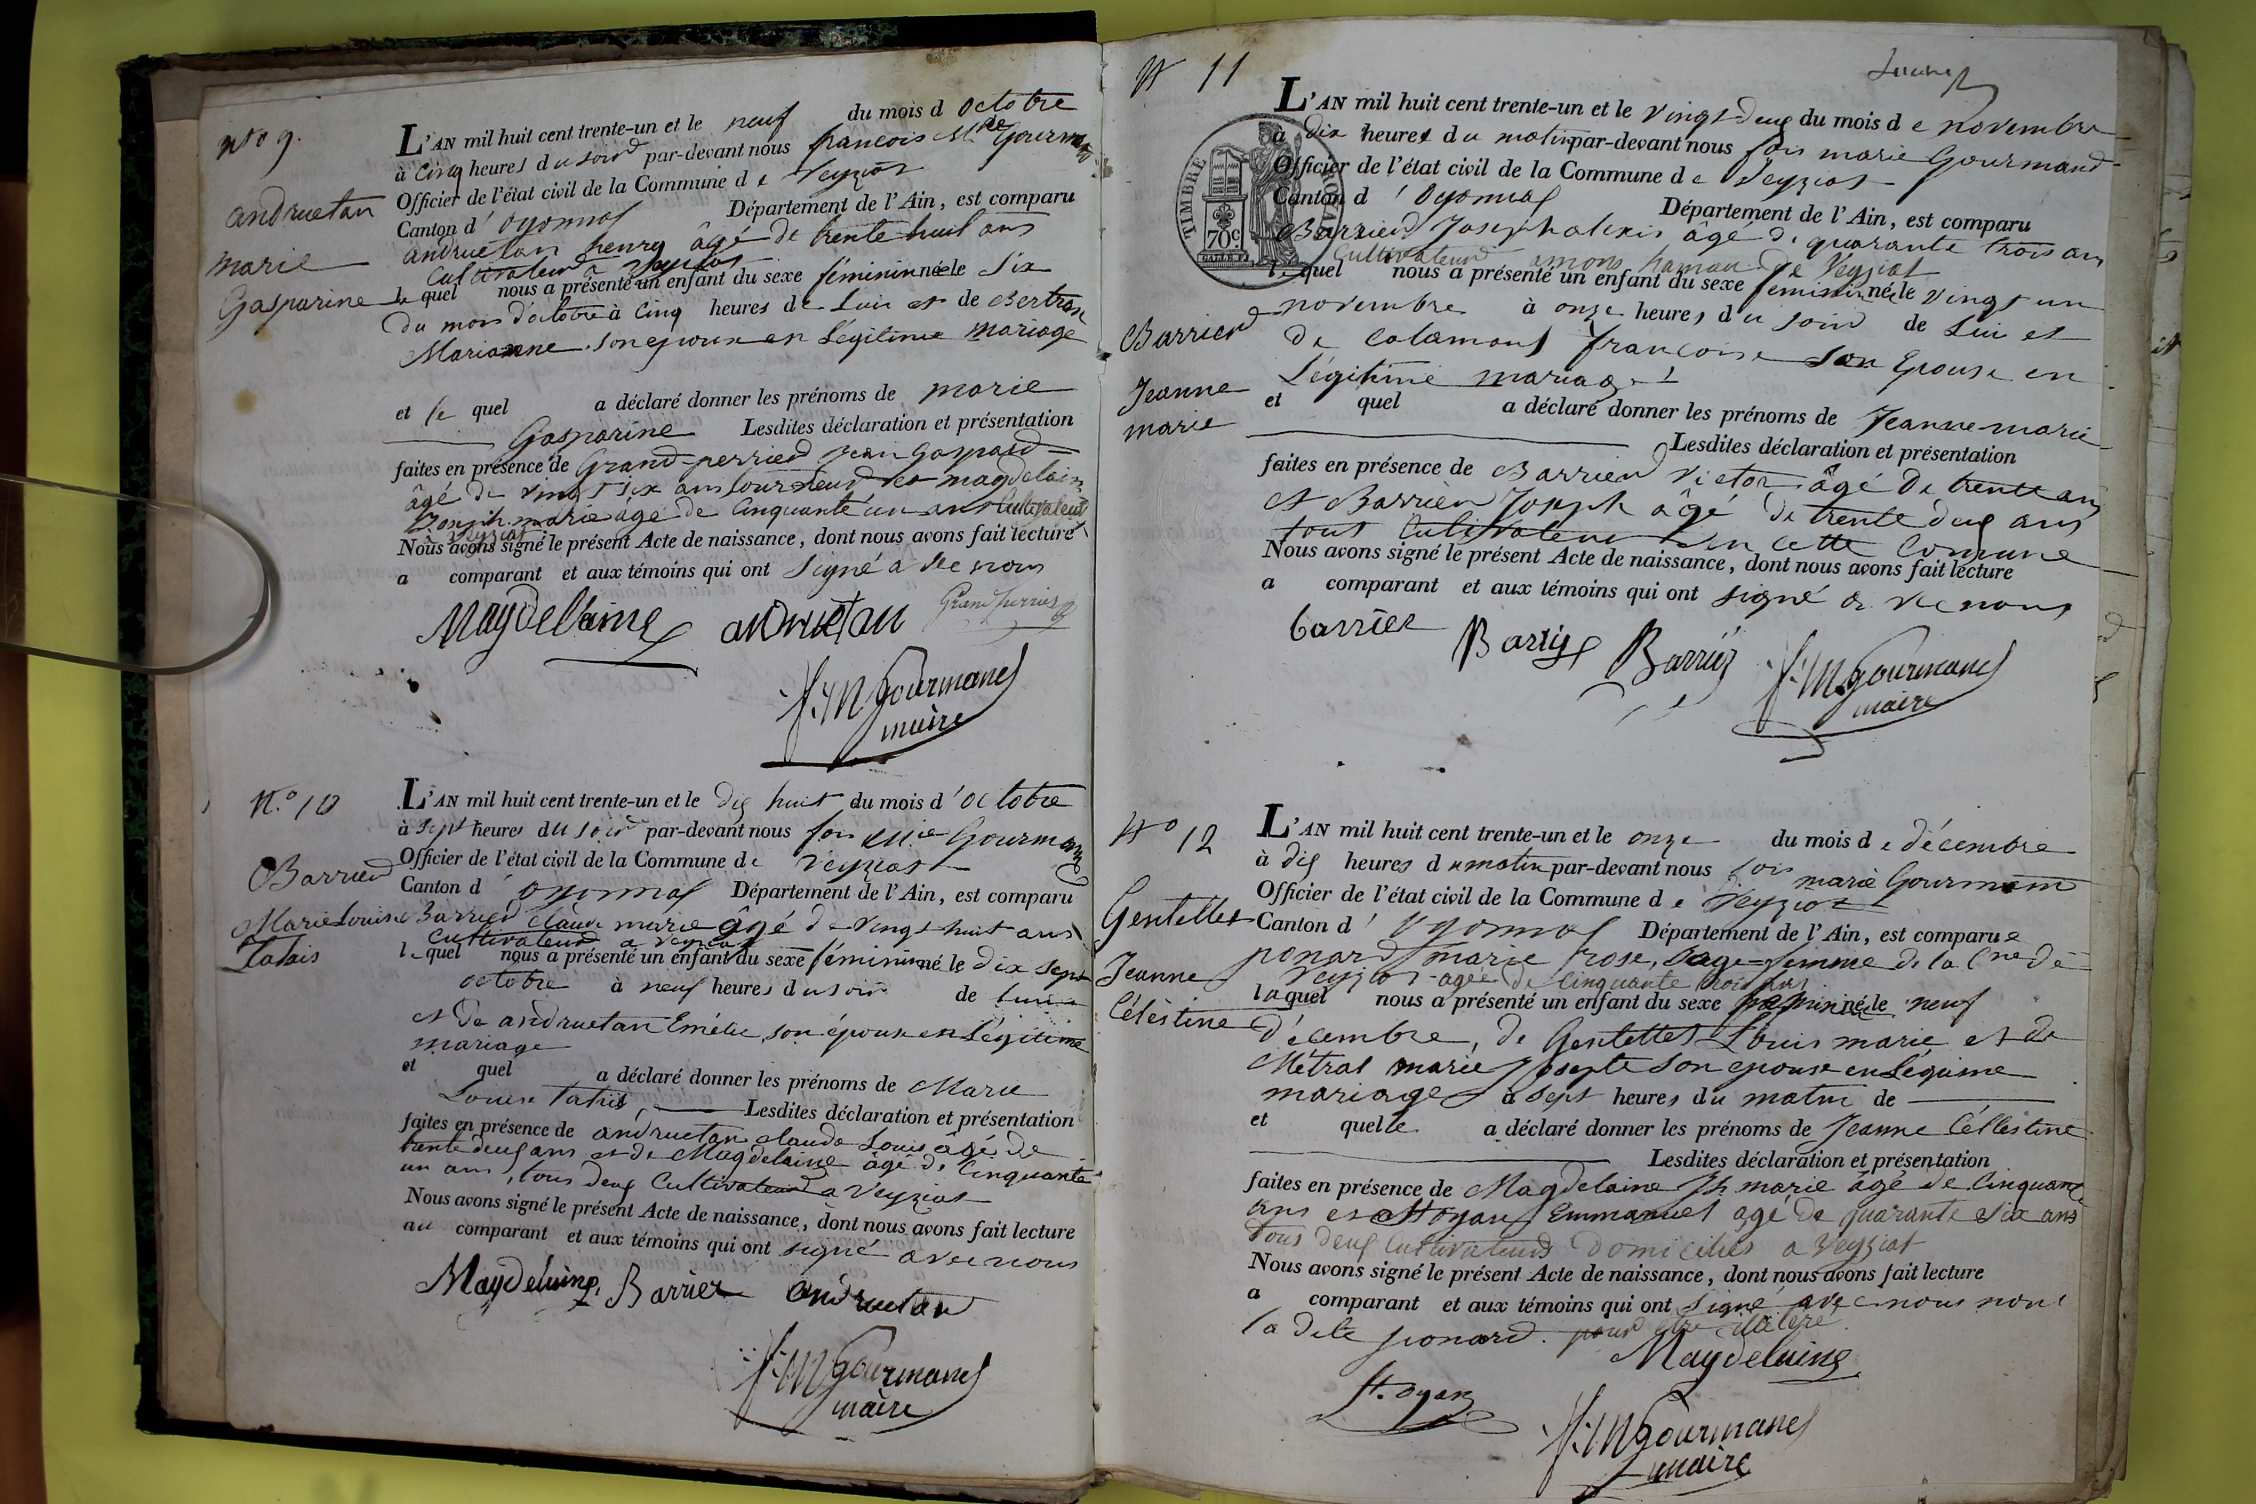 N.o 9.
andruetan
marie
Gasparine
L'AN mil huit cent trente-un et le neuf du mois d octobre
à cinq heures du soir par-devant nous francois Mrie Gourmand
Officier de l'état civil de la Commune de Veyziat
Canton d'oyonnas Département de l'Ain, est comparu
andruetan henry âgé de trente huit ans
Cultivateur a Veyziat
le quel nous a présenté un enfant du sexe féminin née le Six
du mois d'octobre à Cinq heures de Lui et de Bertrand
Marianne son epouse en Légitime mariage
et le quel a déclaré donner les prénoms de marie
Gasparine Lesdites déclaration et présentation
faites en présence de Grand-perrier jean Gaspard
âgé de vingt six ans tourneur et magdelaine
Joseph marie agé de Cinquante un ans Cultivateur
a Veyziat
Nous avons signé le présent Acte de naissance, dont nous avons fait lecture
a comparant et aux témoins qui ont Signé avec nous
Magdelaine andruetan Grand perrier
f. M Gourmand
maire
N.o 10
Barrier
Marie Louise
L'AN mil huit cent trente-un et le dix huit du mois d'octobre
à sept heures du soir par-devant nous fois Mie Gourmand
Officier de l'état civil de la Commune de Veyziat
Canton d oyonnas Département de l'Ain, est comparu
Barrier claude marie âgé de vingt huit ans
cultivateur a Veyziat
le quel nous a présenté un enfant du sexe féminin né le dix sept
octobre à neuf heures du soir de lui
et de andruetan Emélie, son épouse en Légitime
mariage
et quel a déclaré donner les prénoms de Marie
Louise Lesdites déclaration et présentation
faites en présence de andruetan claude Louis âgé de
trente deux ans et de Magdelaine âgé de Cinquante
un ans, tous deux Cultivateurs a Veyziat
Nous avons signé le présent Acte de naissance, dont nous avons fait lecture
au comparant et aux témoins qui ont signé avec nous
Magdelaine Barrier andruetan
f. M Gourmand
maire
N 11
Barrier
Jeanne
marie
L'AN mil huit cent trente-un et le vingt-deux du mois de novembre
à dix heures du matin par-devant nous fois marie Gourmand
Officier de l'état civil de la Commune de Veyziat
Canton d'oyonnas Département de l'Ain, est comparu
TIMBRE ROYAL
70c
Barrier Joseph alexis âgé de quarante trois ans
Cultivateur amons hameau de Veyziat
l quel nous a présenté un enfant du sexe féminin né le vingt un
novembre à onze heures du soir de Lui et
de Calamand francoise son Epouse en
Légitime mariage
et quel a déclaré donner les prénoms de Jeanne-marie
Lesdites déclaration et présentation
faites en présence de Barrier Victor âgé de trente ans
et Barrier Joseph âgé de trente deux ans
tous Cultivateurs en cette Comune
Nous avons signé le présent Acte de naissance, dont nous avons fait lecture
a comparant et aux témoins qui ont signé avec nous
barrier Barrier Barrier f. M. Gourmand
maire
No 12
Gentellet
Jeanne
Célèstine
L'AN mil huit cent trente-un et le onze du mois de décembre
à dix heures du matin par-devant nous fois marie Gourmand
Officier de l'état civil de la Commune de Veyziat
Canton d'oyonnas Département de l'Ain, est comparue
ponard marie rose, Sage-femme de la Cne de
Veyziat agée de cinquante trois ans
laquel nous a présenté un enfant du sexe feminin née le neuf
décembre, de Gentellet Louis marie et de
Métral marie Josepte son epouse en Légitime
mariage à sept heures du matin de
et quelle a déclaré donner les prénoms de Jeanne Céllestine
Lesdites déclaration et présentation
faites en présence de Magdelaine Jh marie âgé de Cinquante
ans et St oyan Emmanuel agé de quarante Six ans
tous deux Cultivateurs Domiciliés a Veyziat
Nous avons signé le présent Acte de naissance, dont nous avons fait lecture
a comparant et aux témoins qui ont Signé avec nous non
la dite ponard pour être illitéré
Magdelaine
St. oyan
f. M Gourmand
maire